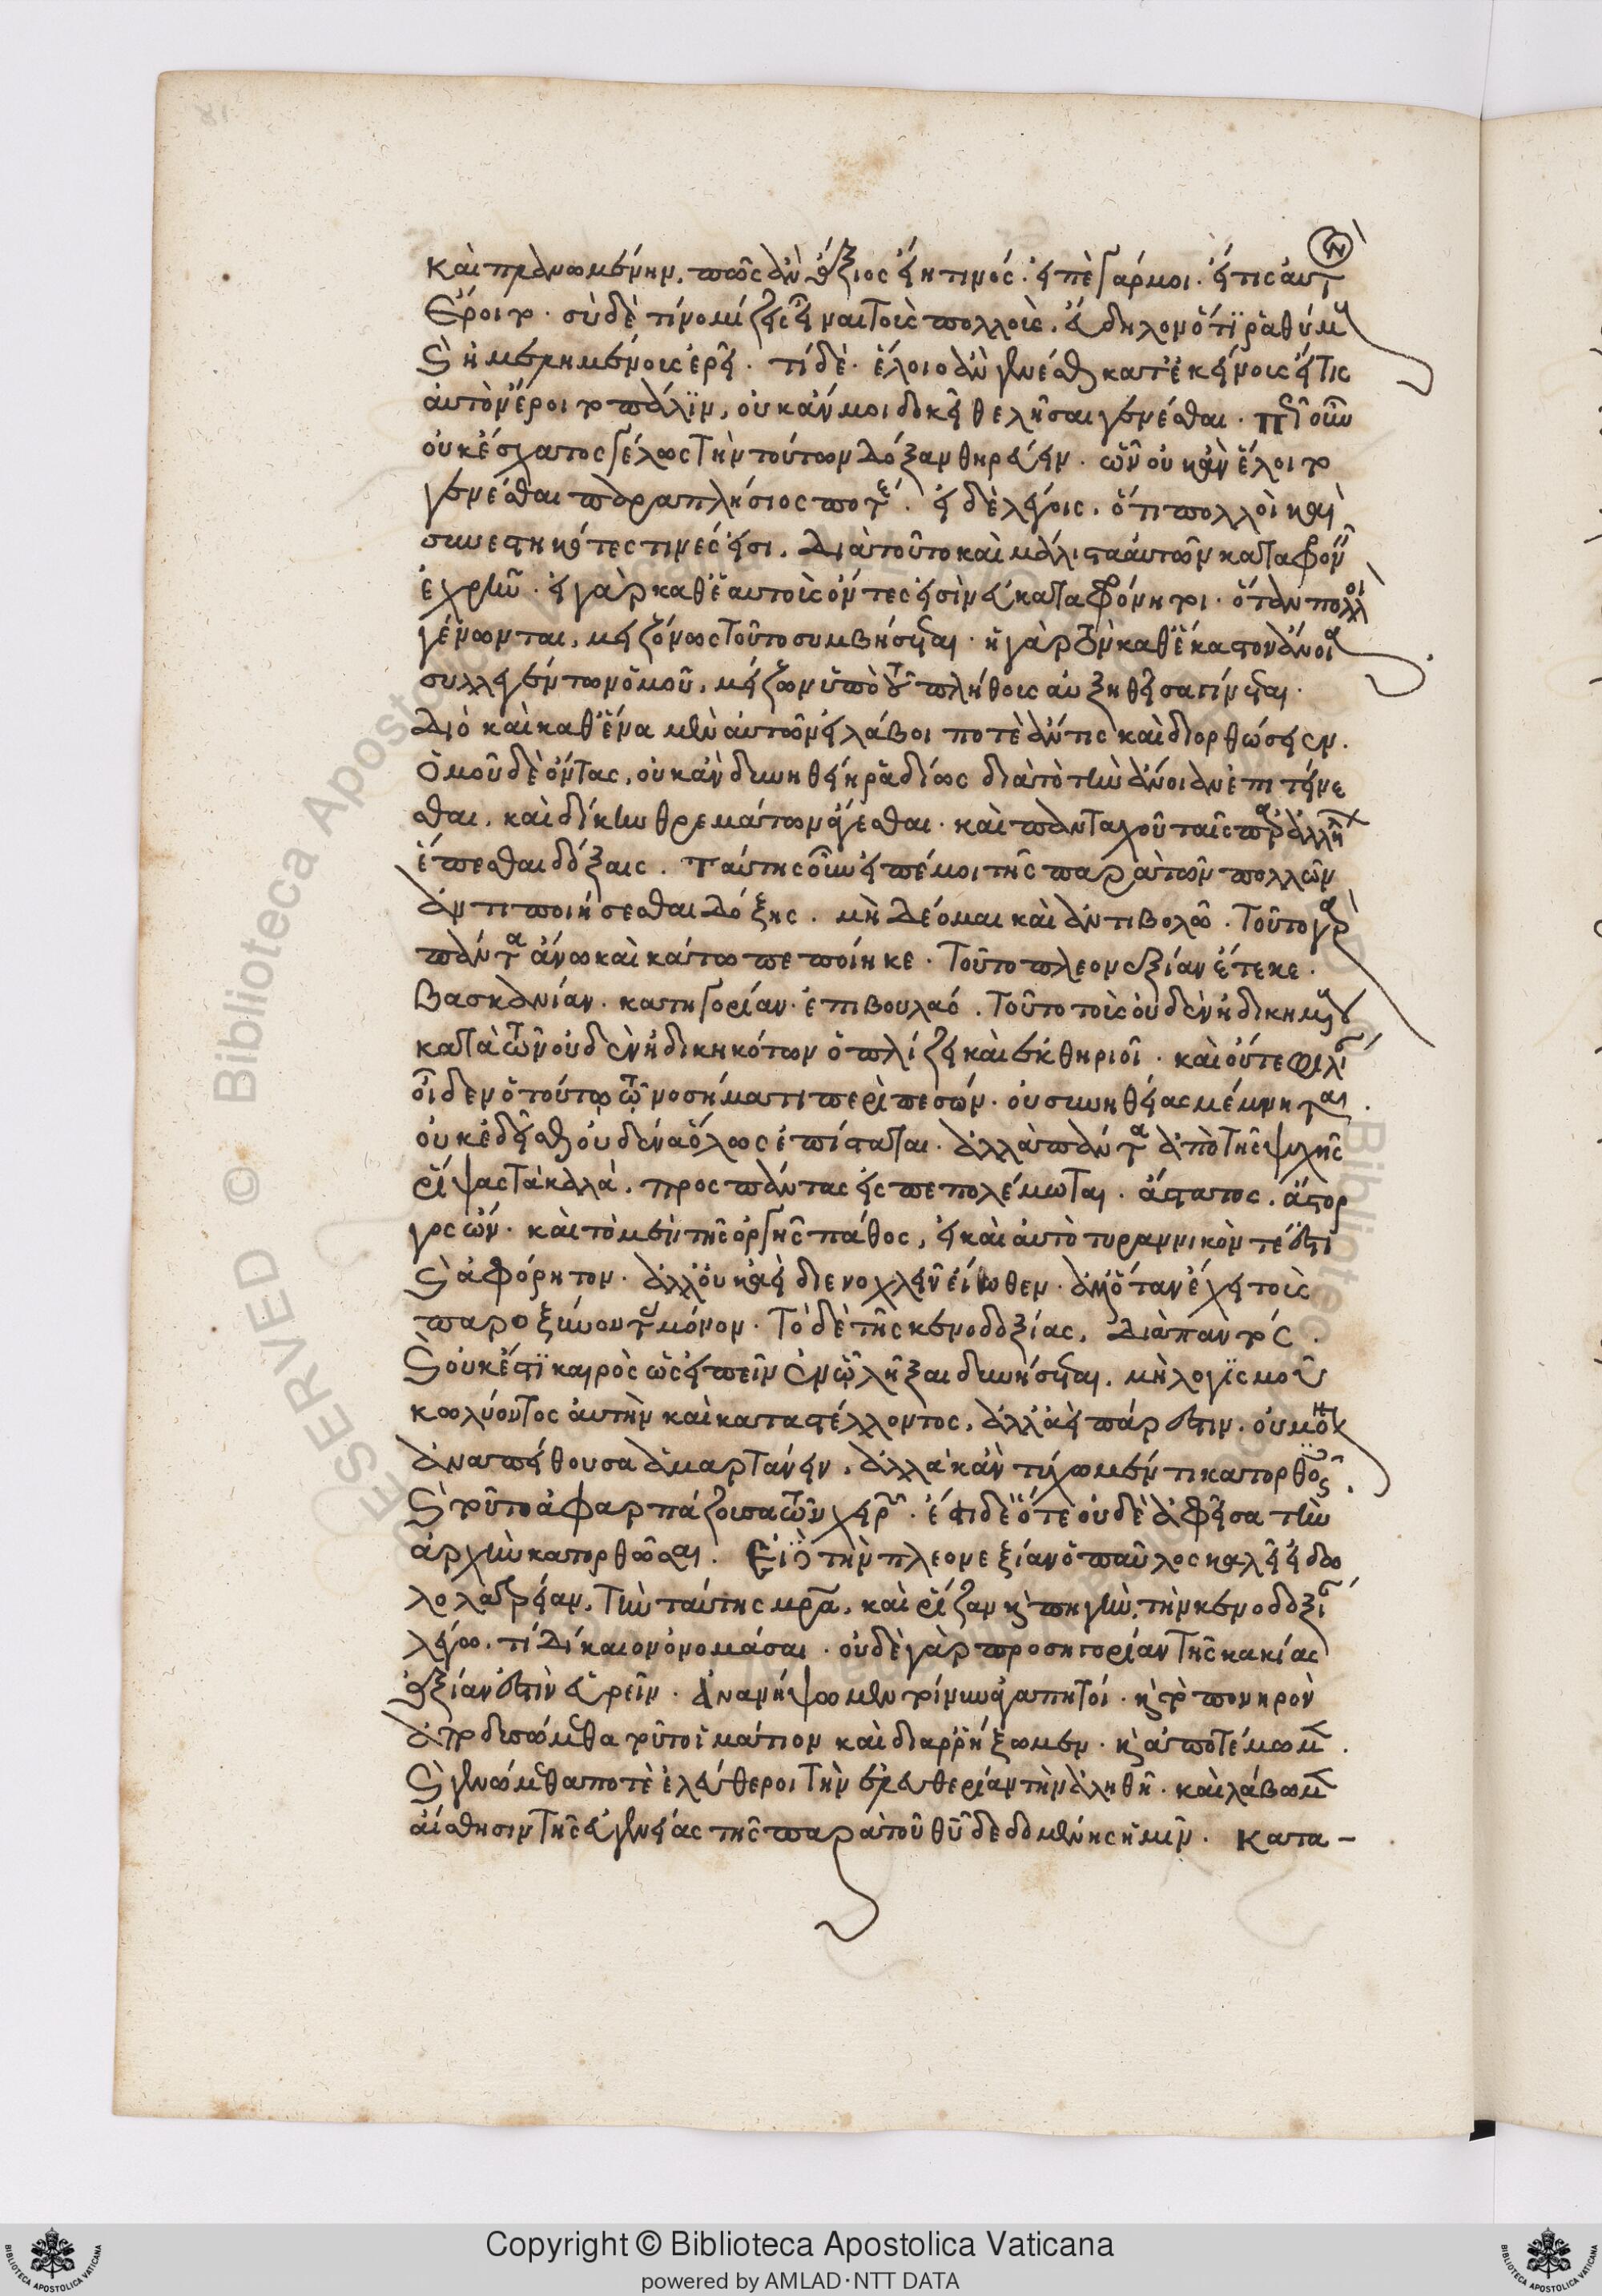 καὶ πλανωμένην. πῶς ἂν ἄξιος εἴη τινός. εἰπὲ γάρ μοι. εἴ τις αὐτ
ἔροιτο. σὺ δὲ τί νομίζεις εἶναι τοὺς πολλοὺς. εὔδηλον ὅτι ῥαθύμ
καὶ ἠμελημένους ἐρεῖ. τί δέ. ἕλοιο ἂν γενέσθαι κατ' ἐκείνους εἴ τις
αὐτὸν ἔροιτο πάλιν, οὐκ ἄν μοι δοκεῖ θελῆσαι γενέσθαι. πῶς οὖν
οὐκ ἐσχάτως γέλως τὴν τούτων δόξαν θηρεύειν. ὧν οὐκ ἂν ἕλοιτο
γενέσθαι παραπλήσιός ποτε. εἰ δὲ λέγοις, ὅτι πολλοὶ καὶ
συνεστηκότες τινές εἰσι. διὰ τοῦτο καὶ μάλιστα αὐτῶν καταφρον
ἐχρῆν. εἰ γὰρ καθ' ἑαυτοὺς ὄντες εἰσὶν εὐκαταφρόνητοι. ὅταν πολλοὶ
γένωνται, μειζόνως τοῦτο συμβήσεται. ἡ γὰρ τῶν καθ' ἕκαστον ἄνοια
συλλεγέντων ὁμοῦ, μείζων ὑπὸ τοῦ πλήθους αὐξηθεῖσα γίνεται.
Διὸ καὶ καθ' ἕνα μὲν αὐτῶν εἰ λάβοι ποτὲ ἄν τις καὶ διορθώσειεν.
Ὁμοῦ δὲ ὄντας, οὐκ ἂν δυνηθείη ῥαδίως διὰ τὸ τὴν ἄνοιαν ἐπιτείνε
σθαι. καὶ δίκην θρεμμάτων ἄγεσθαι. καὶ πανταχοῦ ταῖς παρ' ἀλλήλ
ἕπεσθαι δόξαις. ταύτης οὖν εἰπέ μοι τῆς παρὰ τῶν πολλῶν
ἀντιποιήσεσθαι δόξης. μὴ δέομαι καὶ ἀντιβολῶ. τοῦτο γὰρ
πάντα ἄνω καὶ κάτω πεποίηκε. τοῦτο πλεονεξίαν ἔτεκε.
βασκανίαν. κατηγορίαν. ἐπιβουλάς. τοῦτο τοὺς οὐδὲν ἠδικημένους
κατὰ τῶν οὐδὲν ἠδικηκότων ὁπλίζει καὶ ἐκθηριοῖ. καὶ οὔτε φιλί
οἶδεν ὁ τούτῳ τῷ νοσήματι περιπεσών. οὐ συνηθείας μέμνηται.
οὐκ αἰδεῖσθαι οὐδένα ὅλως ἐπίσταται. ἀλλὰ πάντα ἀπὸ τῆς ψυχῆς
ῥίψας τὰ καλὰ. πρὸς πάντας ἐκπεπολέμωται. ἄστατος. ἄστορ
γος ὤν. καὶ τὸ μὲν τῆς ὀργῆς πάθος, εἰ καὶ αὐτὸ τυραννικόν τέ ἐστι
καὶ ἀφόρητον. ἀλλ' οὐκ ἀεὶ διενοχλεῖν εἴωθεν. ἀλλ' ὅταν ἔχῃ τοὺς
παροξύνοντας μόνον. τὸ δὲ τῆς κενοδοξίας, διὰ παντός.
καὶ οὐκ ἔστι καιρὸς ὡς εἰπεῖν ἐν ᾧ λῆξαι δυνήσεται. μὴ λογισμοῦ
κωλύοντος αὐτὴν καὶ καταστέλλοντος, ἀλλ' ἀεὶ πάρεστιν. οὐ μόν
ἀναπείθουσα ἁμαρτάνειν. ἀλλὰ κἂν τύχωμέν τι κατορθοῦντες.
καὶ τοῦτο ἀφαρπάζουσα τῶν χειρῶν. ἔστι δὲ ὅτε οὐδὲ ἀφεῖσα τὴν
ἀρχὴν κατορθῶσαι. Εἰ δὲ τὴν πλεονεξίαν ὁ παῦλος καλεῖ εἰδω
λολατρείαν. τὴν ταύτης μητέρα, καὶ ῥίζαν καὶ πηγὴν, τὴν κενοδοξί
λέγω. τί δίκαιον ὀνομάσαι. οὐδὲ γὰρ προσηγορίαν τῆς κακίας
ἀξίαν ἐστὶν εὑρεῖν. ἀνανήψωμεν τοίνυν ἀγαπητοί. καὶ τὸ πονηρὸν
ἀποδυσώμεθα τοῦτο ἱμάτιον καὶ διαρρήξωμεν. καὶ ἀποτέμωμεν.
καὶ γενώμεθά ποτε ἐλεύθεροι τὴν ἐλευθερίαν τὴν ἀληθῆ. καὶ λάβωμεν
αἴσθησιν τῆς εὐγενείας τῆς παρὰ τοῦ θεοῦ δεδομένης ἡμῖν. κατα-
Copyright © Biblioteca Apostolica Vaticana
powered by AMLAD·NTT DATA